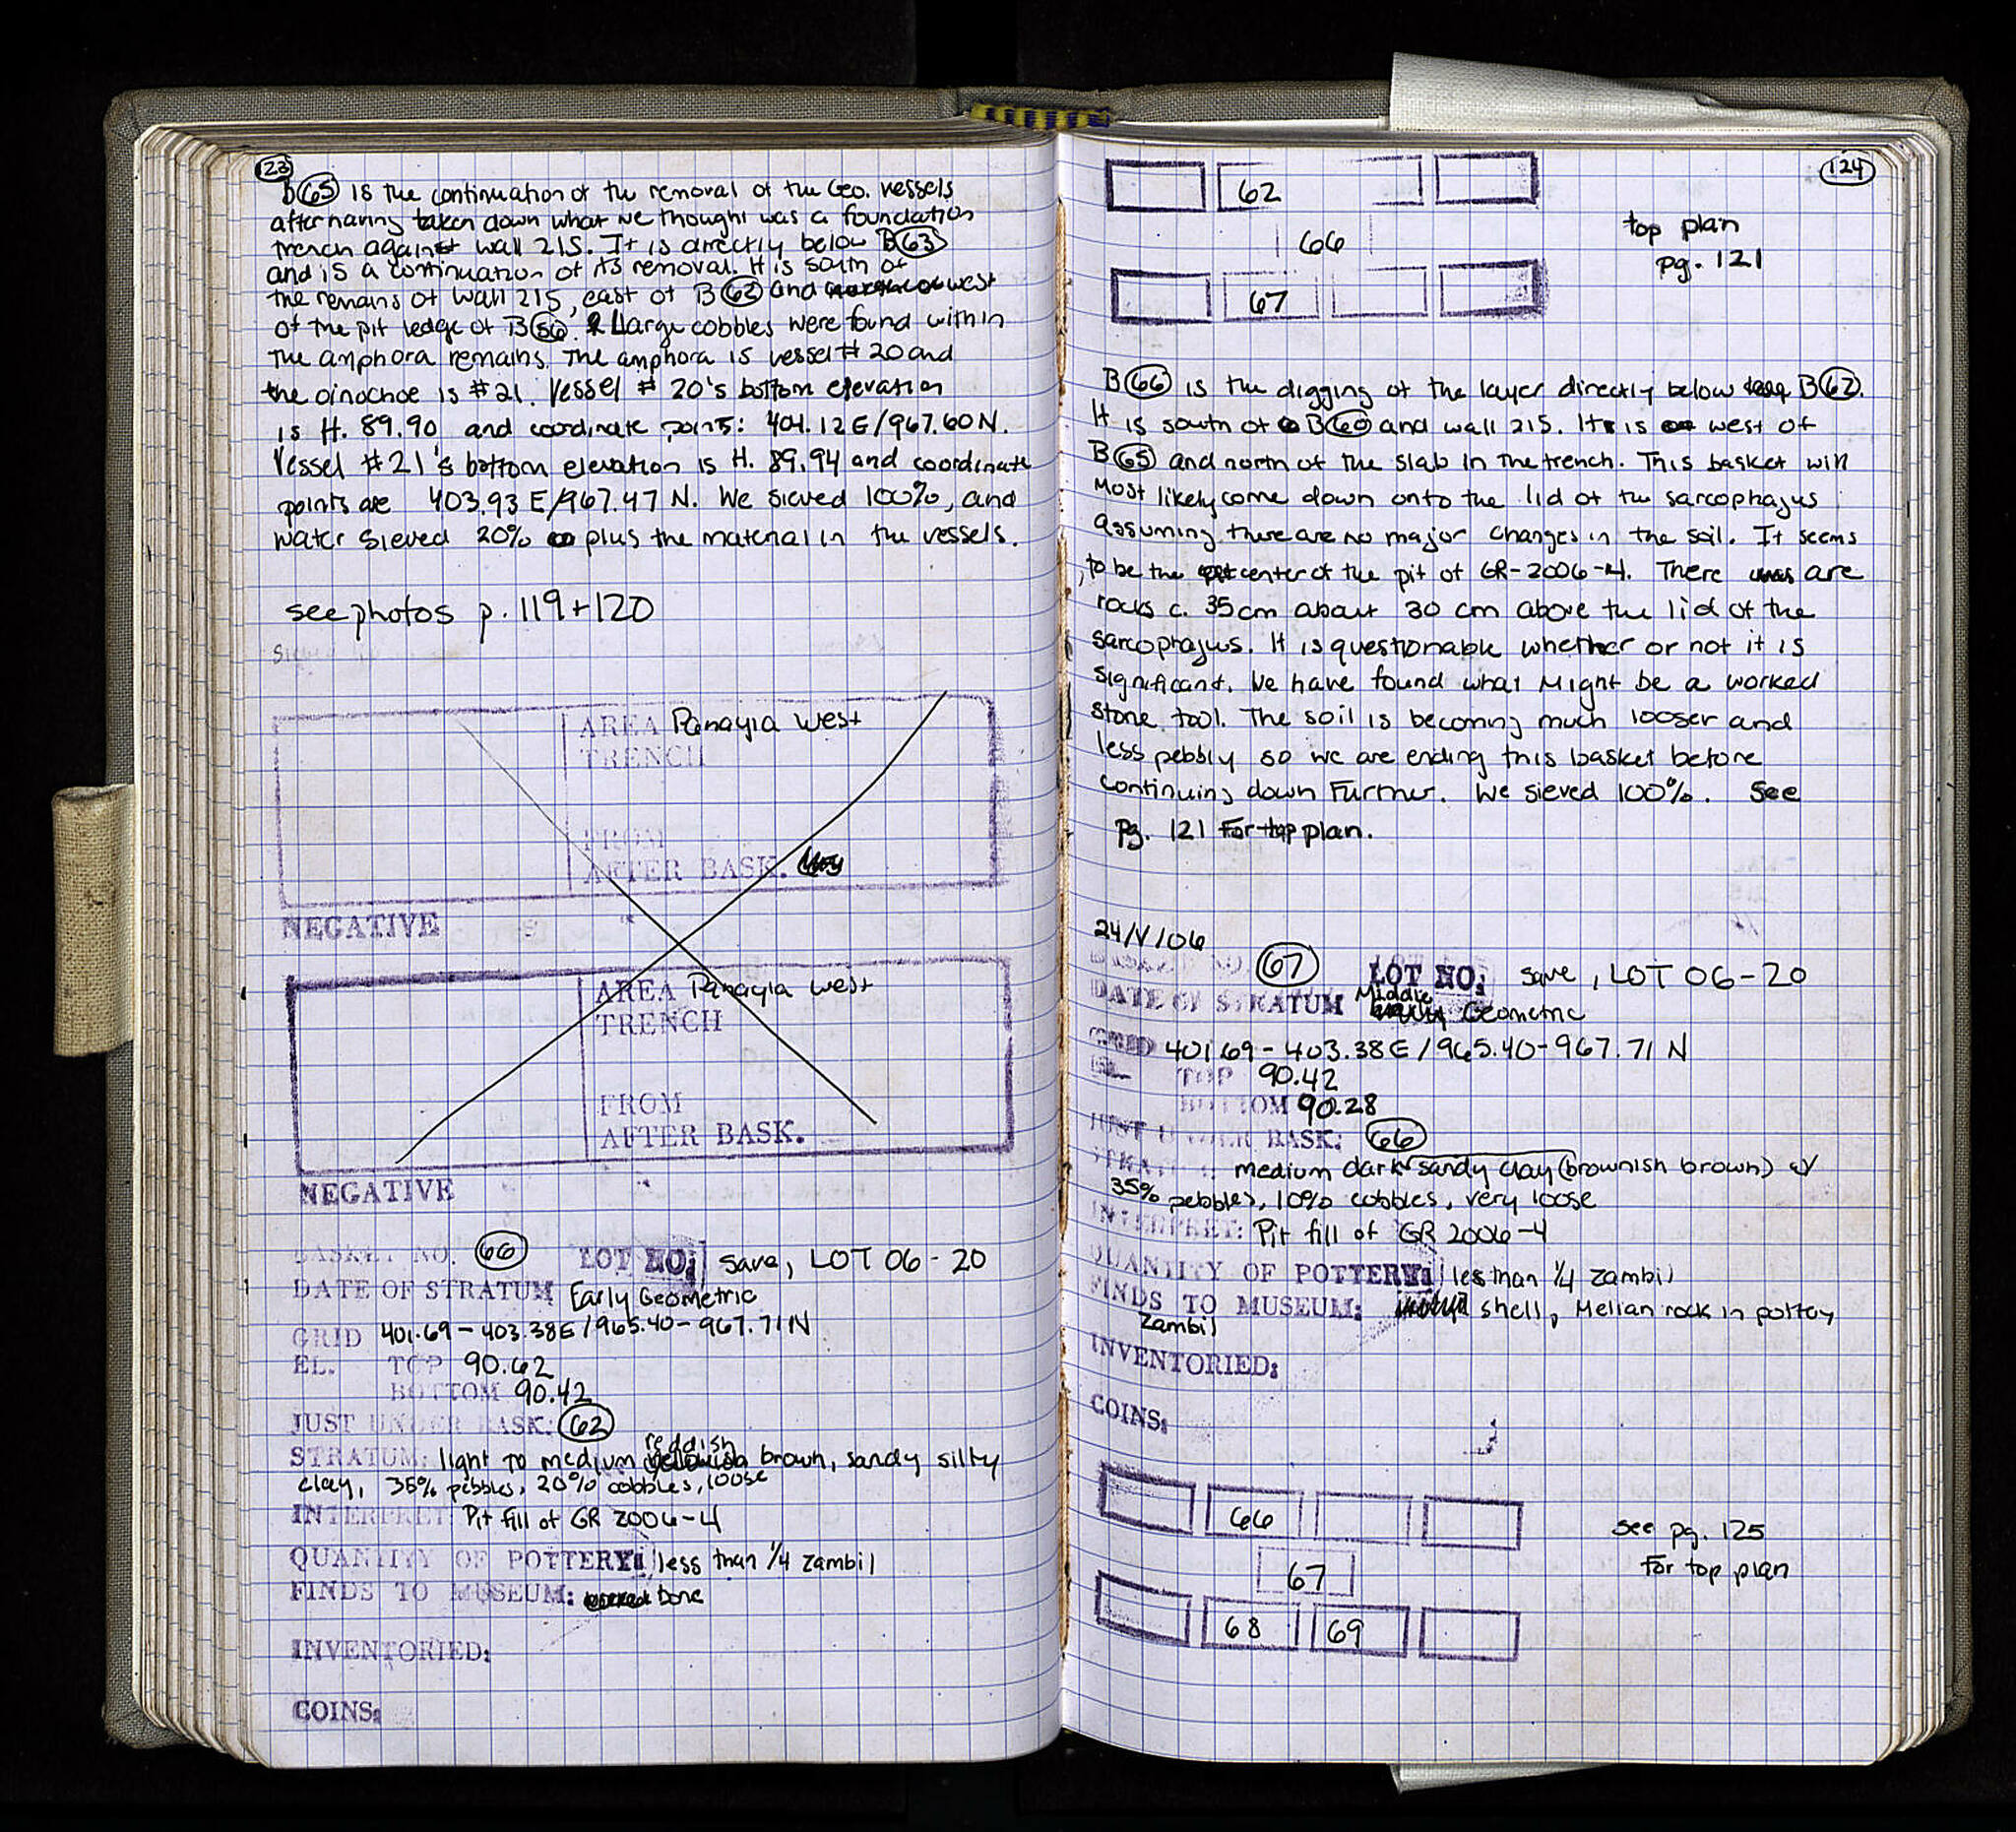 123
B(65) is the continuation of the removal of the Geo. vessels
after having taken down what we thought was a foundation
trench against wall 215. It is directly below B(63)
and is a continuation of its removal. It is south of
the remains of wall 215, east of B(62) and west
of the pit ledge of B(56). Large cobbles were found within
the amphora remains. The amphora is vessel # 20 and
the oinochoe is #21. Vessel # 20's bottom elevation
is H. 89.90 and coordinate points: 404.12 E/967.60 N.
Vessel #21's bottom elevation is H. 89.94 and coordinate
points are 403.93 E/967.47 N. We sieved 100%, and
water sieved 20% plus the material in the vessels.
see photos p. 119 + 120
AREA Panayia West
TRENCH
FROM
AFTER BASK.
NEGATIVE
AREA Panayia West
TRENCH
FROM
AFTER BASK.
NEGATIVE
BASKET NO. (66) LOT NO: save, LOT 06-20
DATE OF STRATUM Early Geometric
GRID 401.69-403.38E/965.40-967.71N
EL. TOP 90.62
BOTTOM 90.42
JUST UNDER BASK: (62)
STRATUM: light to medium reddish brown, sandy silty
clay, 35% pibbles, 20% cobbles, loose
INTERPRET: Pit fill of GR 2006-4
QUANTITY OF POTTERY: less than 1/4 zambil
FINDS TO MUSEUM: bone
INVENTORIED:
COINS:
124
62
66
67
top plan
pg. 121
B(66) is the digging of the layer directly below B(62).
It is south of B(60) and wall 215. It is west of
B(65) and north of the slab in the trench. This basket will
most likely come down onto the lid of the sarcophagus
assuming there are no major changes in the soil. It seems
to be the center of the pit of GR-2006-4. There are
rocks c. 35cm about 30 cm above the lid of the
sarcophagus. It is questionable whether or not it is
significant. We have found what might be a worked
stone tool. The soil is becoming much looser and
less pebbly so we are ending this basket before
continuing down further. We sieved 100%. See
Pg. 121 For top plan.
24/V/06
BASKET NO. (67) LOT NO: save, LOT 06-20
DATE OF STRATUM Middle Geometric
GRID 401.69-403.38E/965.40-967.71 N
EL. TOP 90.42
BOTTOM 90.28
JUST UNDER BASK: (66)
STRATUM: medium dark sandy clay (brownish brown) w/
35% pebbles, 10% cobbles, very loose
INTERPRET: Pit fill of GR 2006-4
QUANTITY OF POTTERY: less than 1/4 zambil
FINDS TO MUSEUM: shell, Melian rock in pottery
zambil
INVENTORIED:
COINS:
66
67
68 69
see pg. 125
For top plan